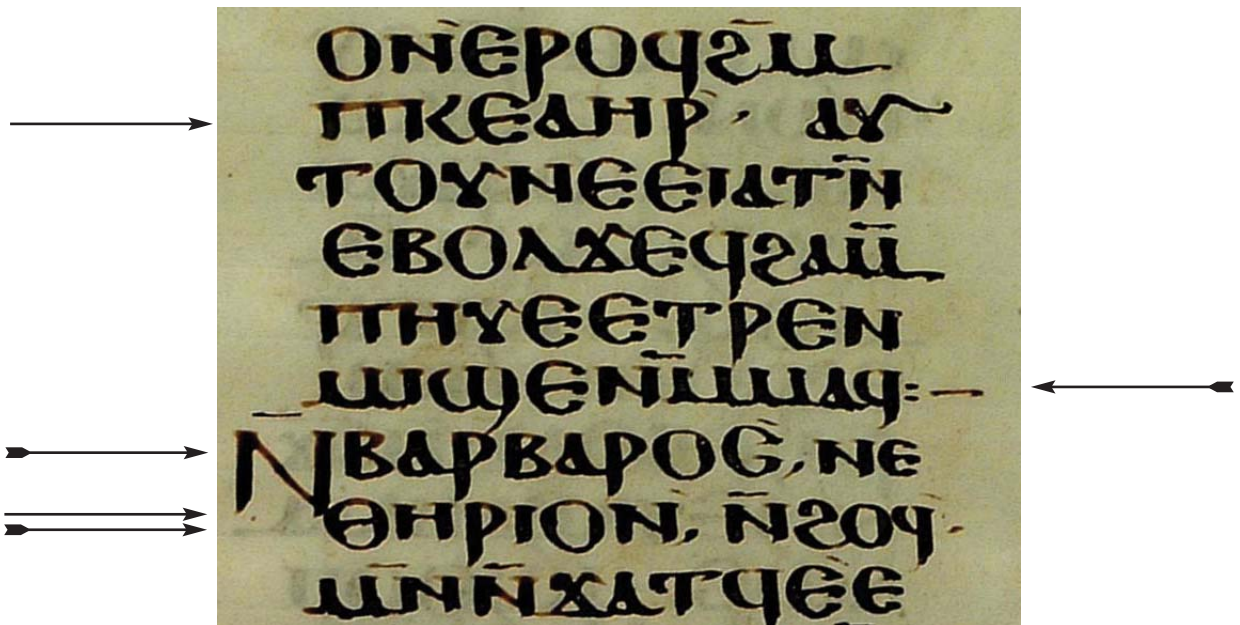 ⲟⲛ̀ⲉⲣⲟϥϩⲙ̅
ⲡⲕⲉⲁⲏⲣ̀· ⲁⲩ
ⲧⲟⲩⲛⲉⲉⲓⲁⲧⲛ̅
ⲉⲃⲟⲗϫⲉϥϩⲁⲙ̅
ⲡⲏⲩⲉⲉⲧⲣⲉⲛ
ⲙⲓϣⲉⲛⲙ̅ⲙⲁϥ:—
ⲛ̅ⲃⲁⲣⲃⲁⲣⲟⲥ̀, ⲛⲉ
ⲑⲏⲣⲓⲟⲛ̀, ⲛ̅ϩⲟϥ̀·
ⲙⲛ̅ⲛ̅ϫⲁⲧϥⲉ̀ⲉ